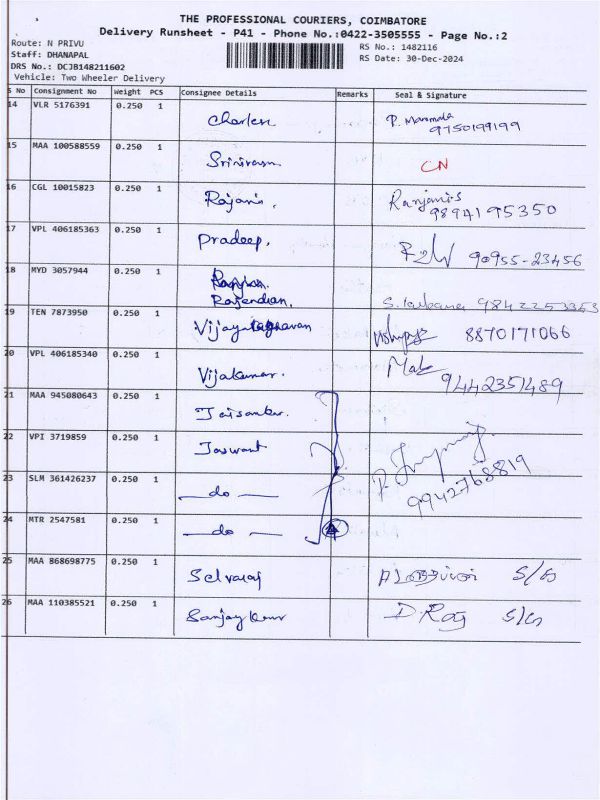 THE PROFESSIONAL COURIERS, COIMBATORE
Delivery Runsheet - P41 - Phone No.:0422-3505555 - Page No.:2
Route: N PRIVU
RS No.: 1482116
Staff: DHANAPAL
RS Date: 30-Dec-2024
DRS No.: DCJB148211602
Vehicle: Two Wheeler Delivery
S No Consignment No Weight PCS Consignee Details Remarks Seal & Signature
14 VLR 5176391 0.250 1 Charlen P.
9750199199
15 MAA 100588559 0.250 1 Srinivasan CN
16 CGL 10015823 0.250 1 Rajani. Ranjani.S
9894195350
17 VPL 406185363 0.250 1 Pradeep. 90955-23456
18 MYD 3057944 0.250 1
Rajendran. S. 9842253353
19 TEN 7873950 0.250 1 Vijayaraghavan 8870171066
20 VPL 406185340 0.250 1 Vijakumar. 9442351489
21 MAA 945080643 0.250 1 Jaisankar.
22 VPI 3719859 0.250 1 Jaswant
23 SLM 361426237 0.250 1 — do — 9942768819
24 MTR 2547581 0.250 1 — do —
25 MAA 868698775 0.250 1 Selvaraj S/G
26 MAA 110385521 0.250 1 Sanjay Kumar D. Raj S/G